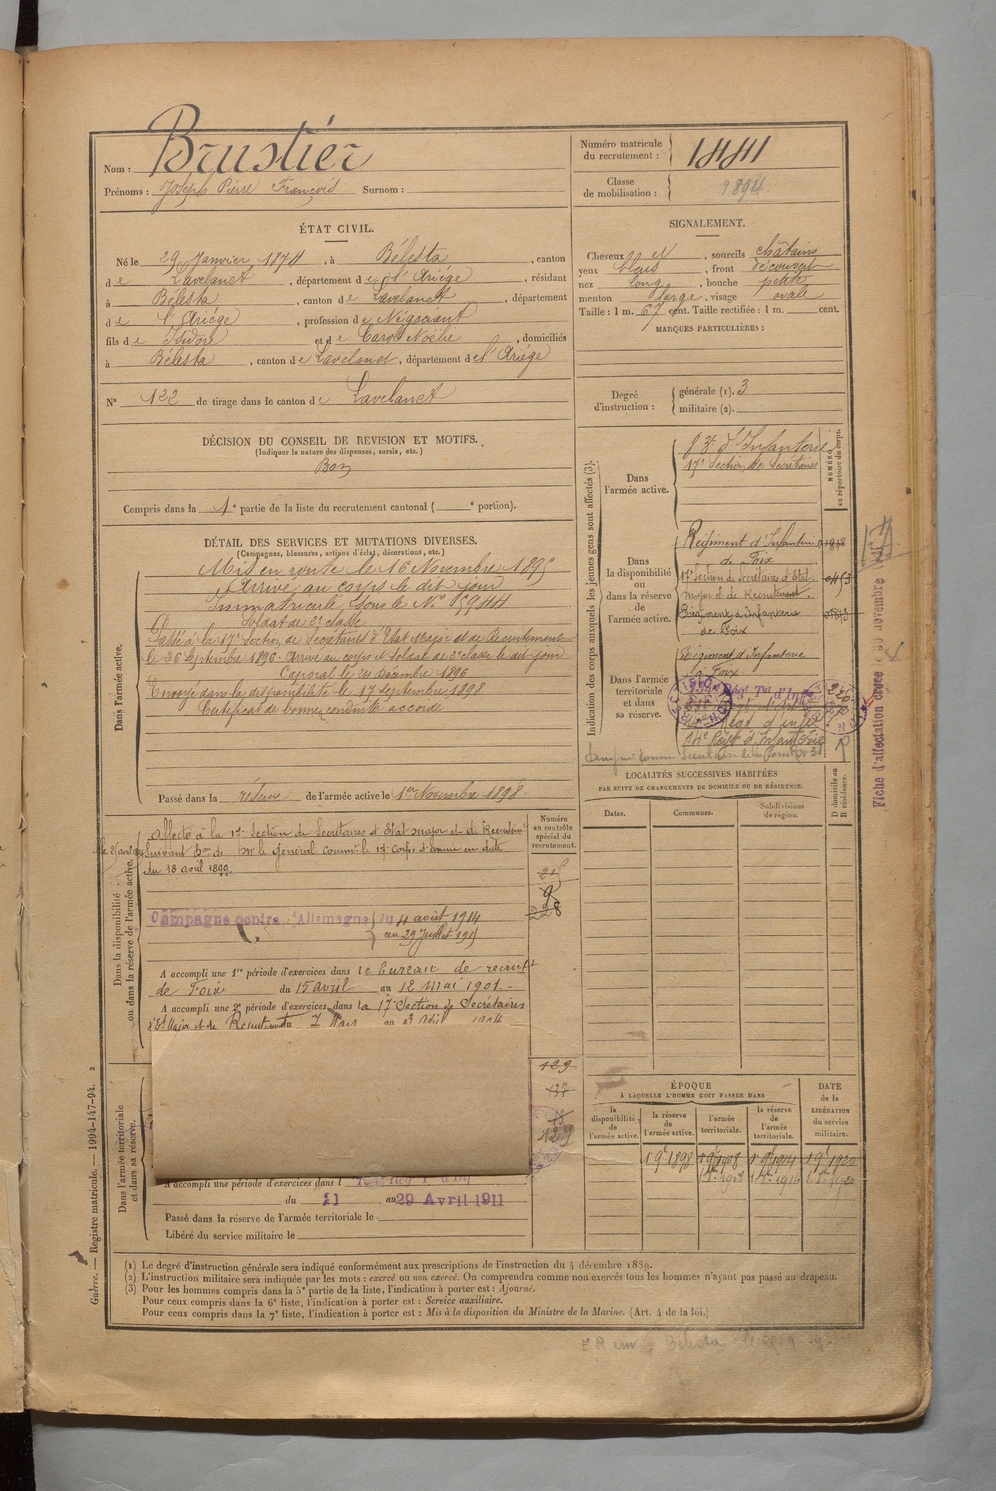 Nom : Brustier
Prénoms : Joseph Pierre François Surnom :
Numéro matricule du recrutement : 1881
Classe de mobilisation : 1894
ÉTAT CIVIL.
Né le 29 Janvier 1874, à Bélesta, canton
de Lavelanet, département de l'Ariège, résidant
à Bélesta, canton de Lavelanet, département
de l'Ariège, profession de Négociant
fils de Isidore et de Carol Noëlie, domiciliés
à Bélesta, canton de Lavelanet, département de l'Ariège
N° 122 de tirage dans le canton de Lavelanet
SIGNALEMENT.
Cheveux et, sourcils châtains
yeux bleus, front découvert
nez long, bouche petite
menton large, visage ovale
Taille : 1 m. 67 cent. Taille rectifiée : 1 m. cent.
MARQUES PARTICULIÈRES :
Degré d'instruction : générale (1). 3
militaire (2).
DÉCISION DU CONSEIL DE REVISION ET MOTIFS.
(Indiquer la nature des dispenses, sursis, etc.)
Bon
Compris dans la 1e partie de la liste du recrutement cantonal ( e portion).
DÉTAIL DES SERVICES ET MUTATIONS DIVERSES.
(Campagnes, blessures, actions d'éclat, décorations, etc.)
Dans l'armée active.
Mis en route le 16 Novembre 1895
Arrivé au corps le dit jour
Immatriculé sous le N° 15944
Soldat de 2e classe
Passé à la 17e Section de Secrétaires d'Etat Major et de Recrutement
le 26 Septembre 1896 Arrivé au corps et soldat de 2e classe le dit jour
Caporal le 24 décembre 1896
Envoyé dans la disponibilité le 17 septembre 1898
Certificat de bonne conduite accordé
Passé dans la réserve de l'armée active le 1er Novembre 1898
Indication des corps auxquels les jeunes gens sont affectés (3).
NUMÉRO au répertoire du corps.
Dans l'armée active.
83e d'Infanterie
17e Section de Secrétaires
Dans la disponibilité ou dans la réserve de l'armée active.
Régiment d'Infanterie
de Foix
17e Section de Secrétaires d'Etat
major et de Recrutement
Régiment d'infanterie
de Foix
Dans l'armée territoriale et dans sa réserve.
Régiment d'Infanterie
à Foix
Régt Tal d'Inf
Régt d'Infanterie
Fiche d'affectation novembre
LOCALITÉS SUCCESSIVES HABITÉES
PAR SUITE DE CHANGEMENTS DE DOMICILE OU DE RÉSIDENCE.
Dates. Communes. Subdivisions de région. D domicile ou R résidence.
Dans la disponibilité ou dans la réserve de l'armée active.
Numéro au contrôle spécial du recrutement.
Affecté à la 17e Section de Secrétaires d'Etat major et de Recrutemt
Suivant de Mr le Général comm. le 17e Corps d'armée en date
du 18 avril 1899.
Campagne contre l'Allemagne du 4 août 1914
au 29 juillet 1915
228
A accompli une 1re période d'exercices dans le bureau de recrutt
de Foix du 15 avril au 12 mai 1901.
A accompli une 2e période d'exercices dans la 17e Section de Secrétaires
d'Et Major et de Recrutement du 7 Mars au
Dans l'armée territoriale et dans sa réserve.
129
137
129
A accompli une période d'exercices dans l
du 21 au 29 Avril 1911
Passé dans la réserve de l'armée territoriale le
Libéré du service militaire le
ÉPOQUE
À LAQUELLE L'HOMME DOIT PASSER DANS
la disponibilité de l'armée active. la réserve de l'armée active. l'armée territoriale. la réserve de l'armée territoriale.
DATE de la LIBÉRATION du service militaire.
1 9e 1898 1 9e 1908 1 9e 1914 1 9e 1920
(1) Le degré d'instruction générale sera indiqué conformément aux prescriptions de l'instruction du 4 décembre 1889.
(2) L'instruction militaire sera indiquée par les mots : exercé ou non exercé. On comprendra comme non exercés tous les hommes n'ayant pas passé au drapeau.
(3) Pour les hommes compris dans la 5e partie de la liste, l'indication à porter est : Ajourné.
Pour ceux compris dans la 6e liste, l'indication à porter est : Service auxiliaire.
Pour ceux compris dans la 7e liste, l'indication à porter est : Mis à la disposition du Ministre de la Marine. (Art. 4 de la loi.)
Guerre. — Registre matricule. — 1994-147-94. 2